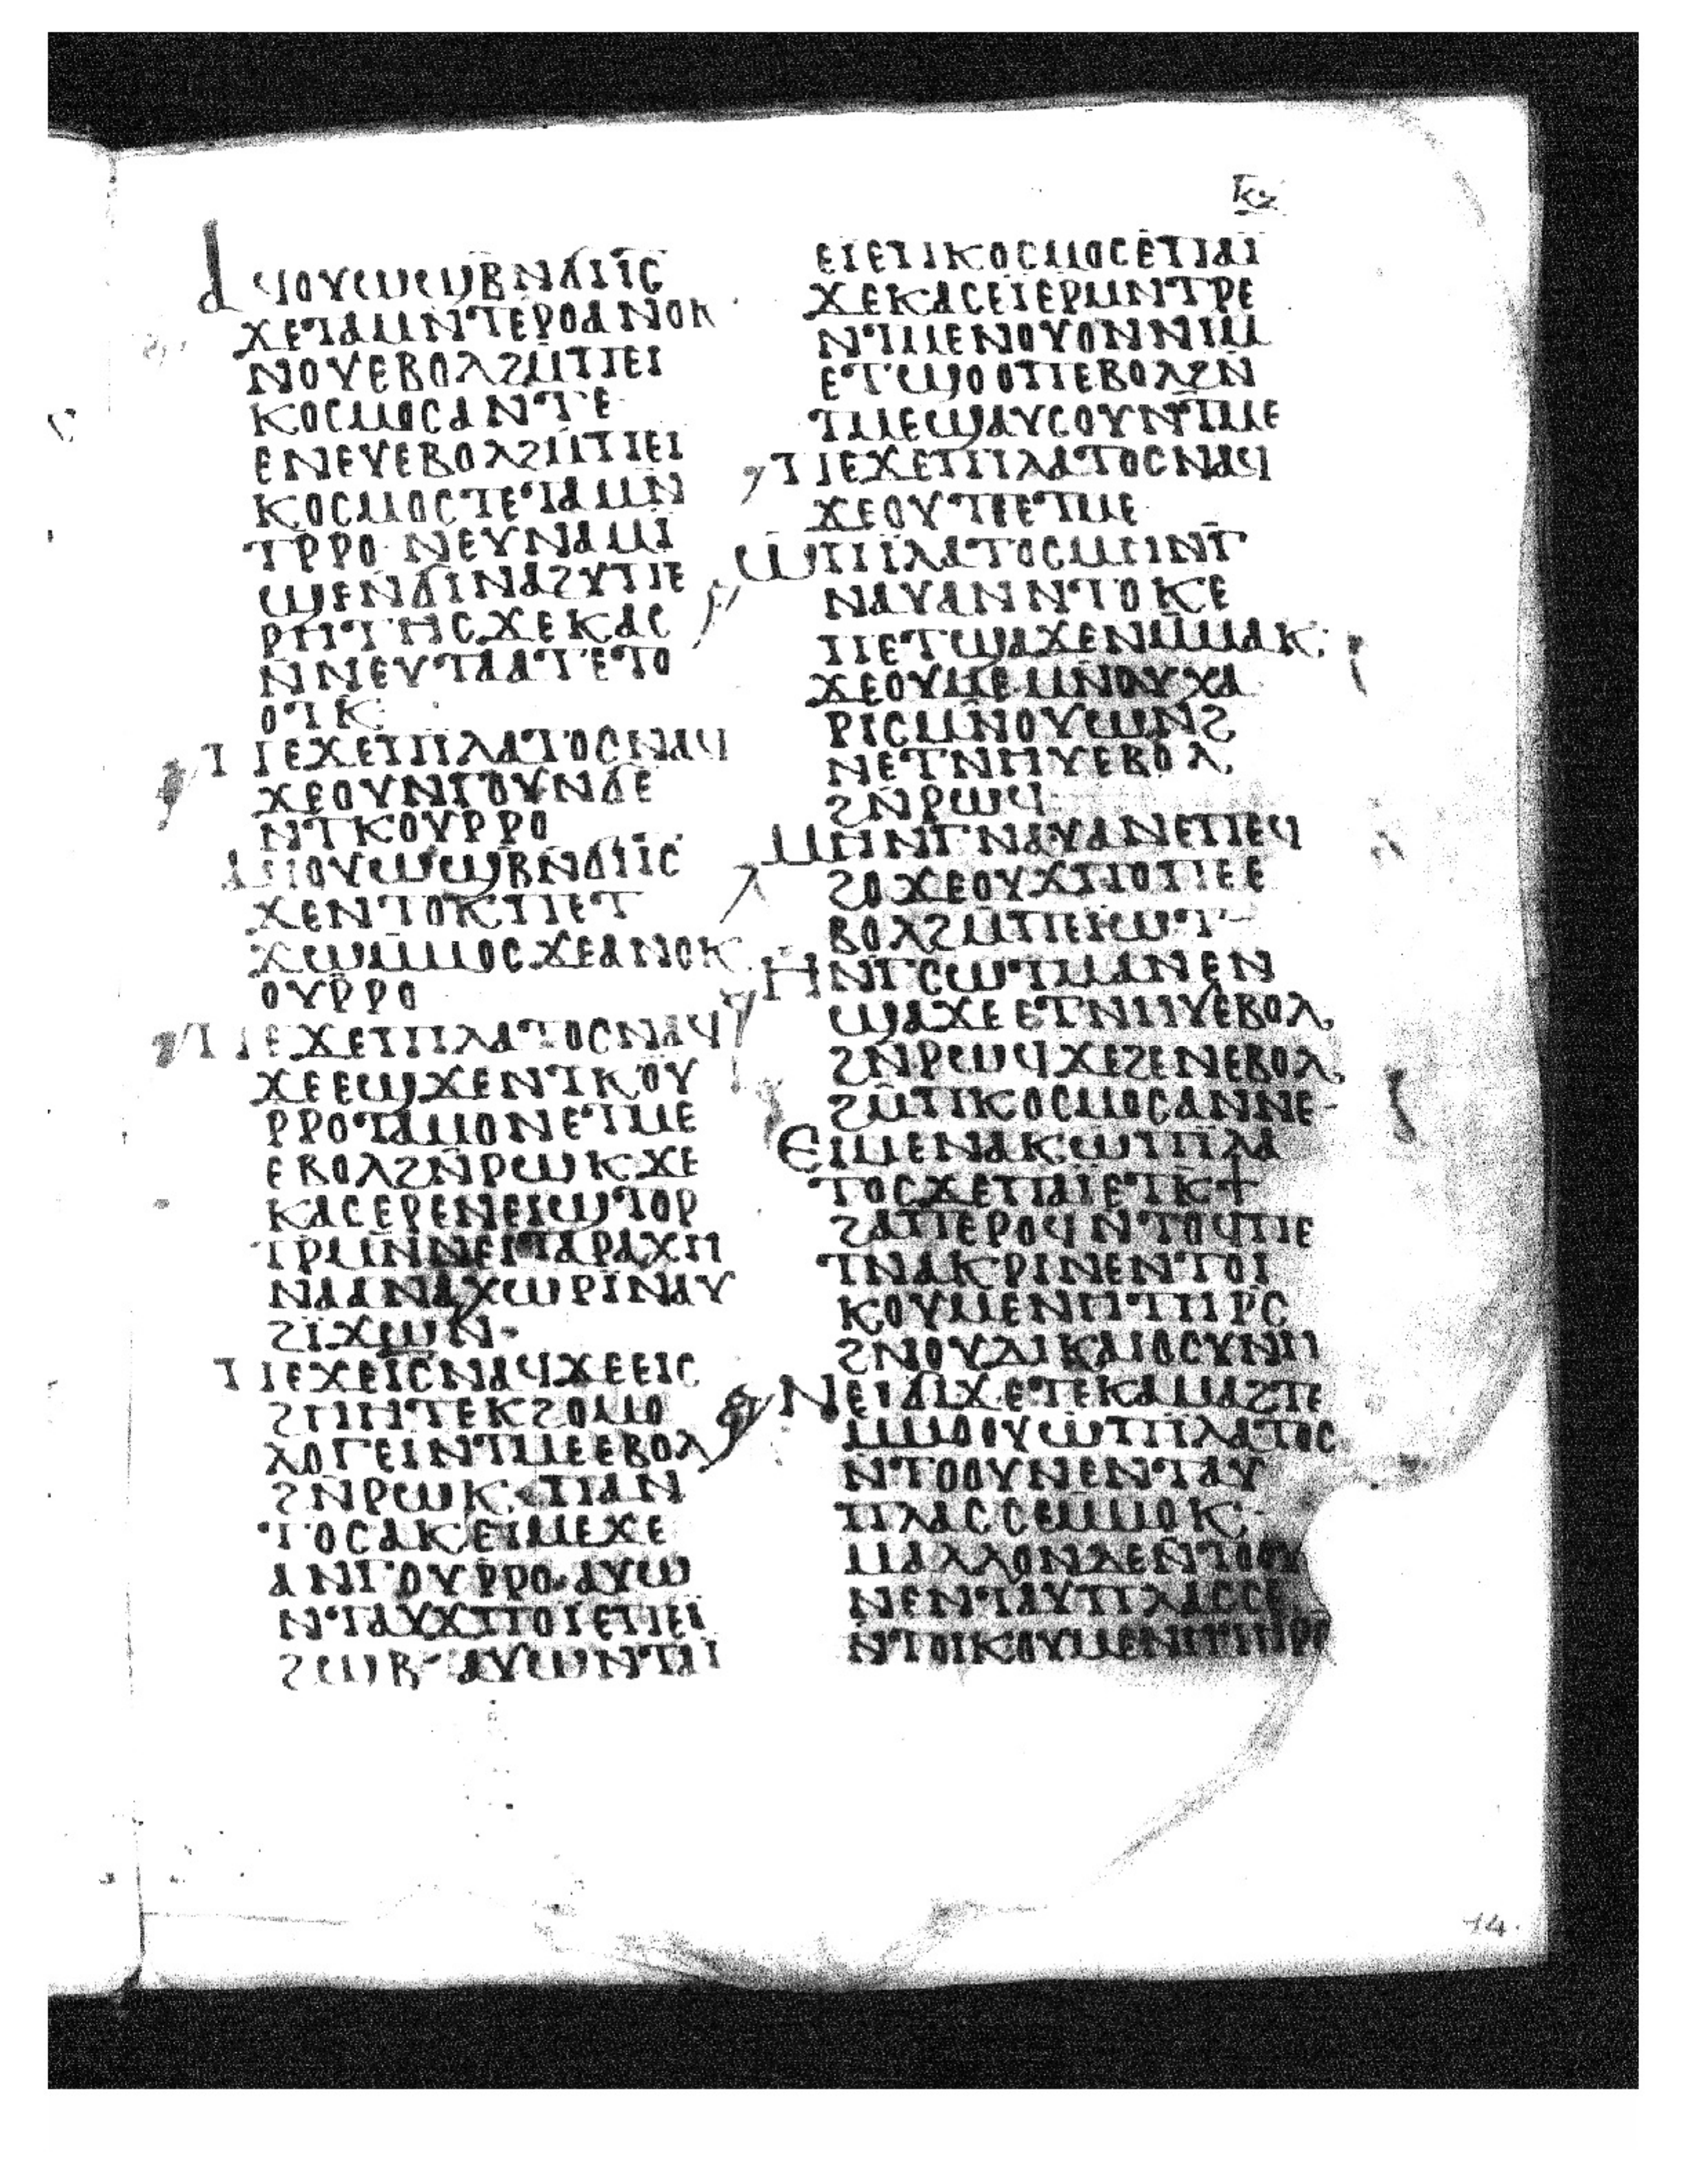 ⲕⲍ
ⲁϥⲟⲩⲱϣⲃ ⲛ̄ϭⲓⲓ̅ⲥ̅
ϫⲉⲧⲁⲙⲛ̄ⲧⲉⲣⲟⲁⲛⲟⲕ
ⲛⲟⲩⲉⲃⲟⲗϩⲙ̄ⲡⲉⲓ
ⲕⲟⲥⲙⲟⲥⲁⲛⲧⲉ
ⲉⲛⲉⲩⲉⲃⲟⲗϩⲙ̄ⲡⲉⲓ
ⲕⲟⲥⲙⲟⲥⲧⲉⲧⲁⲙⲛ̄
ⲧⲣ̄ⲣⲟ· ⲛⲉⲩⲛⲁⲙⲓ
ϣⲉⲛϭⲓⲛⲁϩⲩⲡⲉ
ⲣⲏⲧⲏⲥϫⲉⲕⲁⲥ
ⲛ̄ⲛⲉⲩⲧⲁⲁⲧⲉⲧⲟ
ⲟⲧⲕ̄
ⲡⲉϫⲉⲡⲓⲗⲁⲧⲟⲥⲛⲁϥ
ϫⲉⲟⲩⲛⲧⲟⲩⲛϭⲉ
ⲛ̄ⲧⲕⲟⲩⲣ̄ⲣⲟ
ⲁϥⲟⲩⲱϣⲃⲛ̄ϭⲓⲓ̅ⲥ̅
ϫⲉⲛⲧⲟⲕⲡⲉⲧ
ϫⲱⲙ̄ⲙⲟⲥϫⲉⲁⲛⲟⲕ
ⲟⲩⲣ̄ⲣⲟ
ⲡⲉϫⲉⲡⲓⲗⲁⲧⲟⲥⲛⲁϥ
ϫⲉⲉϣϫⲉⲛⲧⲕⲟⲩ
ⲣ̄ⲣⲟⲧⲁⲙⲟⲛⲉⲧⲙⲉ
ⲉⲃⲟⲗϩⲛ̄ⲣⲱⲕϫⲉ
ⲕⲁⲥⲉⲣⲉⲛⲉⲓϣⲧⲟⲣ
ⲧⲣ̄ⲙⲛ̄ⲛⲉⲓⲧⲁⲣⲁⲭⲏ
ⲛⲁⲁⲛⲁⲭⲱⲣⲓⲛⲁⲩ
ϩⲓϫⲱⲛ-
ⲡⲉϫⲉⲓ̅ⲥ̅ⲛⲁϥϫⲉⲉⲓⲥ
ϩⲏⲏⲧⲉⲕϩⲟⲙⲟ
ⲗⲟⲅⲉⲓⲛⲧⲙⲉⲉⲃⲟⲗ
ϩⲛ̄ⲣⲱⲕ:ⲡⲁⲛ
ⲧⲟⲥⲁⲕⲉⲓⲙⲉϫⲉ
ⲁⲛⲅⲟⲩⲣ̄ⲣⲟ·ⲁⲩⲱ
ⲛⲧⲁⲩϫⲡⲟⲓⲉⲡⲉⲓ
ϩⲱⲃ- ⲁⲩⲱⲛⲧⲁⲓ
ⲉⲓⲉⲡⲕⲟⲥⲙⲟⲥⲉⲡⲁⲓ
ϫⲉⲕⲁⲥⲉⲓⲉⲣⲙⲛⲧⲣⲉ
ⲛ̄ⲧⲙⲉⲛⲟⲩⲟⲛⲛⲓⲙ
ⲉⲧϣⲟⲟⲡⲉⲃⲟⲗϩⲛ̄
ⲧⲙⲉϣⲁⲩⲥⲟⲩⲛ̄ⲧⲙⲉ
ⲡⲉϫⲉⲡⲓⲗⲁⲧⲟⲥⲛⲁϥ
ϫⲉⲟⲩⲧⲉⲧⲙⲉ
ⲱⲡⲓⲗⲁⲧⲟⲥⲙⲉⲓⲛⲧ̄
ⲛⲁⲩⲁⲛⲛⲧⲟⲕⲉ
ⲡⲉⲧϣⲁϫⲉⲛⲙ̄ⲙⲁⲕ:
ϫⲉⲟⲩⲙⲉⲙⲛ̄ⲟⲩⲭⲁ
ⲣⲓⲥⲙⲛ̄ⲟⲩⲱⲛϩ
ⲛⲉⲧⲛⲏⲩⲉⲃⲟⲗ
ϩⲛ̄ⲣⲱϥ
ⲙⲏⲛⲅⲛⲁⲩⲁⲛⲉⲡⲉϥ
ϩⲟϫⲉⲟⲩϫⲡⲟⲡⲉⲉ
ⲃⲟⲗϩⲙ̄ⲡⲉⲓⲱⲧ-
ⲏⲛⲅⲥⲱⲧⲙⲁⲛⲉⲛ
ϣⲁϫⲉⲉⲧⲛⲏⲩⲉⲃⲟⲗ
ϩⲛ̄ⲣⲱϥϫⲉϩⲉⲛⲉⲃⲟⲗ
ϩⲙ̄ⲡⲕⲟⲥⲙⲟⲥⲁⲛⲛⲉ-
ⲉⲓⲙⲉⲛⲁⲕⲱⲡⲓⲗⲁ
ⲧⲟⲥϫⲉⲡⲁⲓⲉⲧⲕϯ
ϩⲁⲡⲉⲣⲟϥⲛⲧⲟϥⲡⲉ
ⲧⲛⲁⲕⲣⲓⲛⲉⲛⲧⲟⲓ
ⲕⲟⲩⲙⲉⲛⲏⲧⲏⲣⲥ
ϩⲛⲟⲩⲇⲓⲕⲁⲓⲟⲥⲩⲛⲏ
ⲛⲉⲓϭⲓϫⲉⲧⲉⲕⲁⲙⲁϩⲧⲉ
ⲙ̄ⲙⲟⲟⲩⲱⲡⲓⲗⲁⲧⲟⲥ
ⲛ̄ⲧⲟⲟⲩⲛⲉⲛⲧⲁⲩ
ⲡⲗⲁⲥⲥⲉⲙ̄ⲙⲟⲕ:-
ⲙⲁⲗⲗⲟⲛⲇⲉⲛ̄ⲧⲟⲟⲩ
ⲛⲉⲛⲧⲁⲩⲡⲗⲁⲥⲥⲉ
ⲛ̄ⲧⲟⲓⲕⲟⲩⲙⲉⲛⲏⲧⲏⲣⲥ
14.